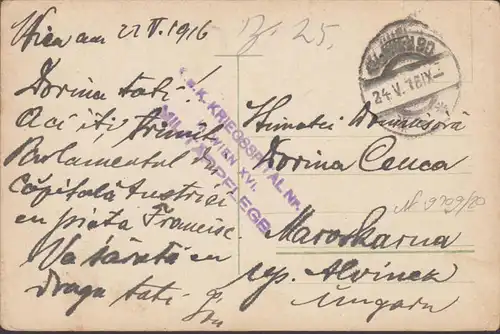 Wien am 22 V. 1916
25.
Dorina tati!
Aci iți trimit
Parlamentul din
Capitala Austriei
cu piața Francisc.
Va sărută cu
draga tati
K.u.K. KRIEGSSPITAL Nr.
WIEN XVI.
MILITÄRPFLEGE
24.V.16 IX
Stimatei Domnișoră
Dorina Cenca
Nº 9799/20
Maroskarna
up. Alvincz
Ungarn